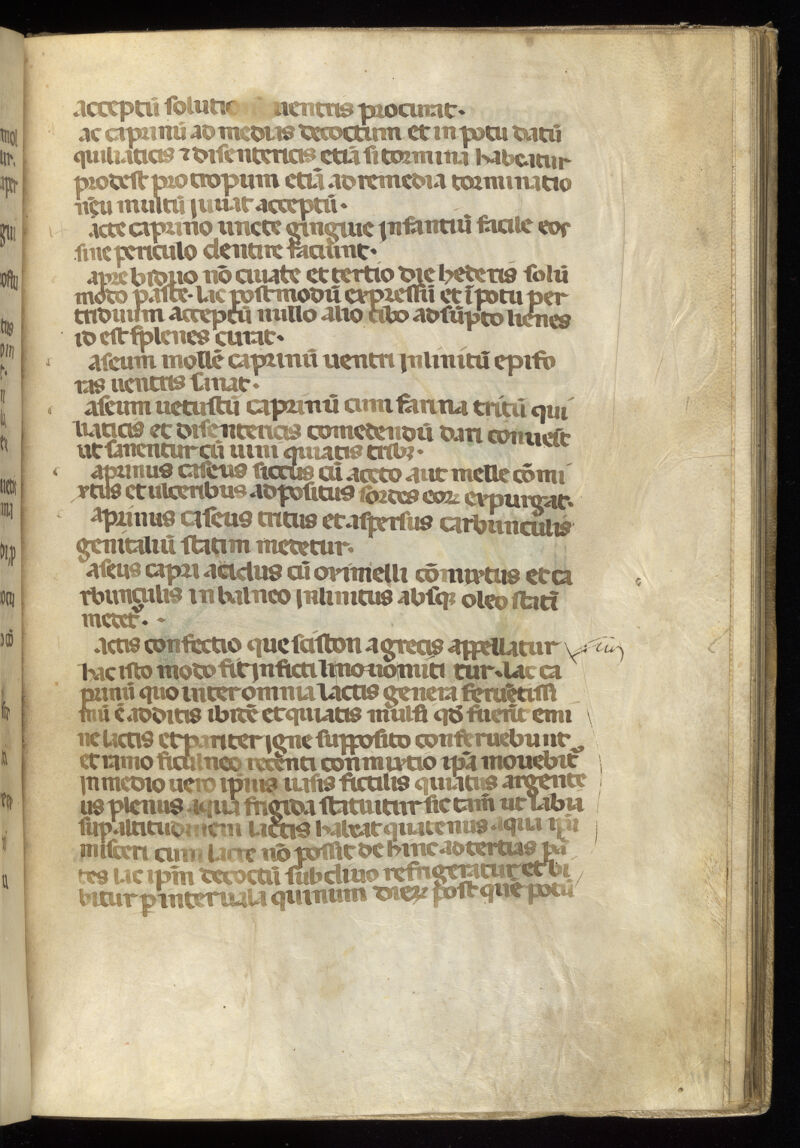 acceptū solutio uentris procurat.
ac caprinū ad medias decoctum et in potu datū
quiliaticis ⁊ disentericis etiā si tormina habeatur
prodest pro tropum etiā ad remedia torminatio
nēu multū iuuat acceptū.
acte caprino uncte gingiue infantiū facile eor
sine periculo dentire faciunt.
apre biduo nō ciuate et tertio die hederis solū
modo paste. lac postmodū expressū et ī potu per
triduum acceptū nullo alio cibo adsūpto lienes
id est splenes curat.
aseum mollē caprinū uentri inlinitū epifo
ras uentris sanat.
aseum uetustū caprinū cum farina tritū qui
liaticis et disentericis comedendū dari conuest
ut sanentur cū uini quiatis tribꝫ.
aprinus caseus siccus cū aceto aut melle cōmi
xtus et ulceribus adpositus sordes eoꝝ expurgat.
aprinus caseus tritus et aspersus carbunculis
genitaliū statim medetur.
aseus capri acidus cū oximelli cōmixtus et ca
rbunculis in balneo inlinitus absqꝫ oleo statī
medet.
actis confectio que sciston a grecis appellatur
hac isto modo fit in fictili mo nomiti tur. lac ca
prinū quo inter omnia lactis genera feruētissi
mū ē additis ibidē et quiatis mulsi qd fuerīt emi
ne lactis et pariter igne supposito conferuebunt
et ramo ficulneo recenti conmixtio ipā mouebit
in medio uero ipsius uasis fictilis quiatus argente
us plenus aqua frigida statuitur sic tam̄ ut labia
sup altitudinem lactis habeat quatenus aqua ipā
misceri cum lacte nō possit de hinc ad tertias pa
tes lac ipm̄ decoctū sub diuo refrigeratur et bi
bitur p interuala quinum dieꝝ post que potū